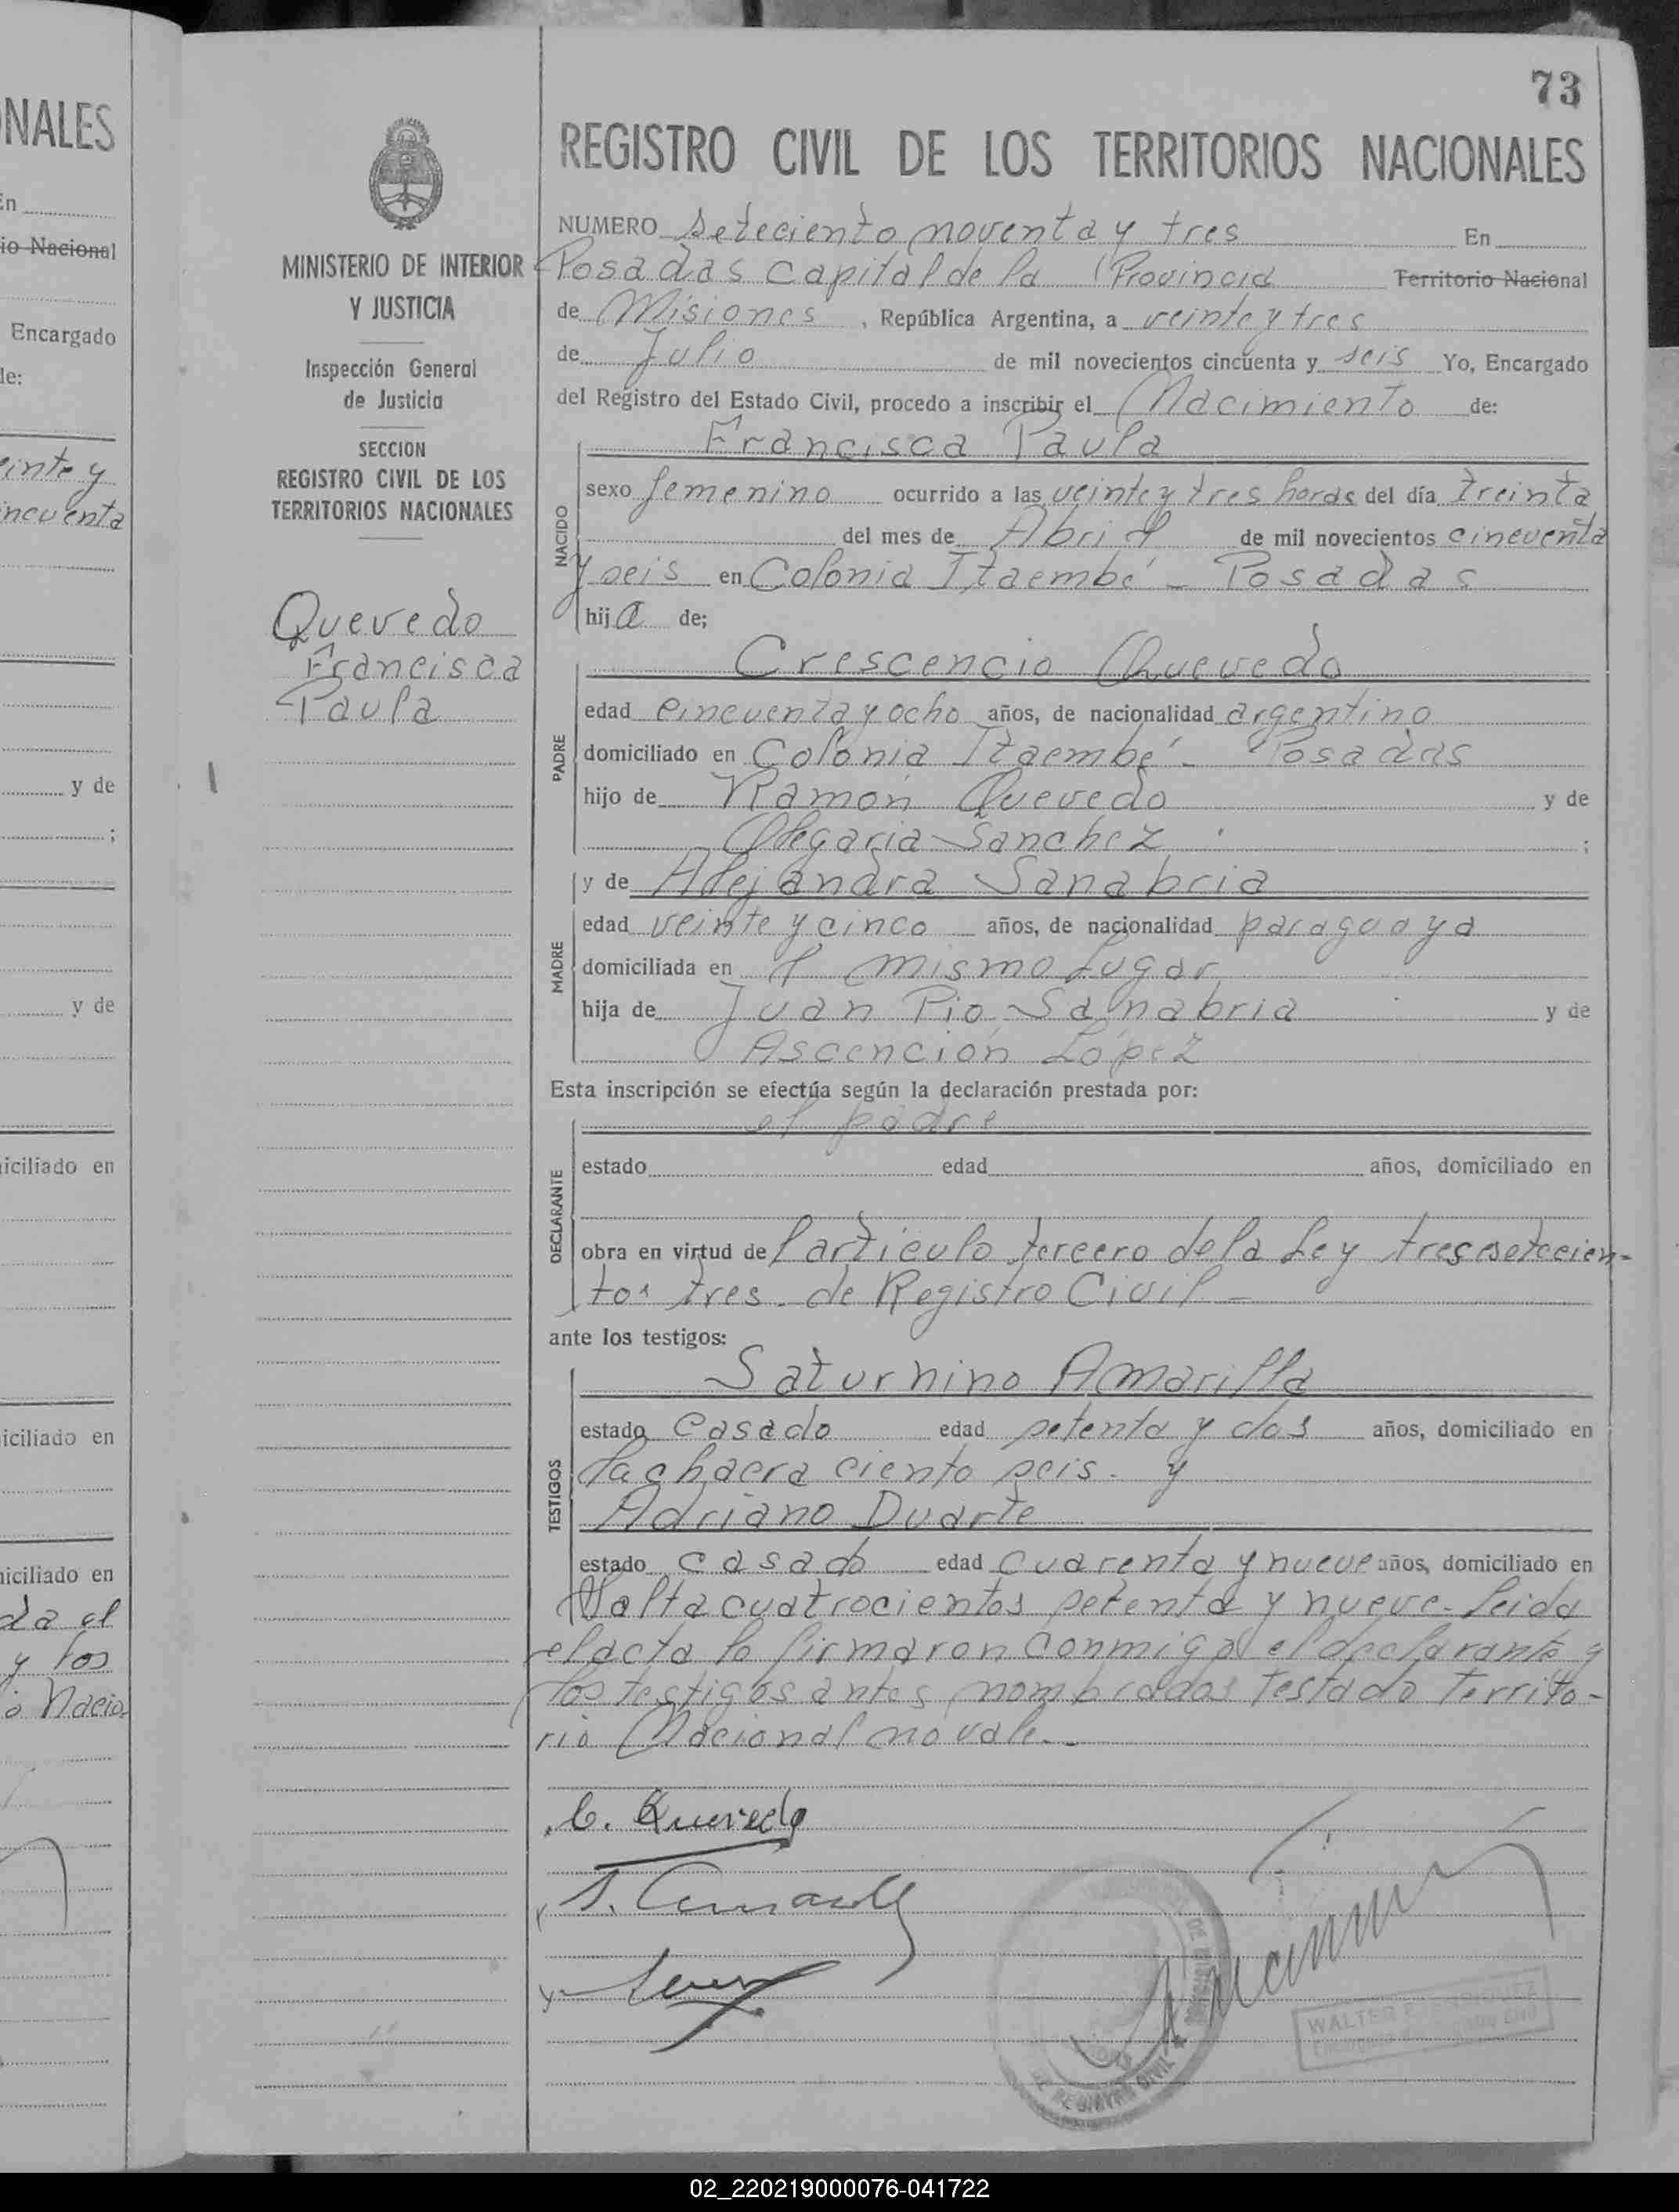 73
REGISTRO CIVIL DE LOS TERRITORIOS NACIONALES
NUMERO Seteciento noventa y tres En
Posadas Capital de la Provincia Territorio Nacional
de Misiones, República Argentina, a veinte y tres
de Julio de mil novecientos cincuenta y seis Yo, Encargado
del Registro del Estado Civil, procedo a inscribir el Nacimiento de:
Francisca Paula
NACIDO
sexo femenino ocurrido a las veinte y tres horas del día treinta
del mes de Abril de mil novecientos cincuenta
y seis en Colonia Itaembé - Posadas
hija de;
MINISTERIO DE INTERIOR
Y JUSTICIA
Inspección General
de Justicia
SECCION
REGISTRO CIVIL DE LOS
TERRITORIOS NACIONALES
Quevedo
Francisca
Paula
PADRE
Crescencio Quevedo
edad cincuenta y ocho años, de nacionalidad argentino
domiciliado en Colonia Itaembé - Posadas
hijo de Ramón Quevedo y de
Olegaria Sanchez ;
y de Alejandra Sanabria
MADRE
edad veinte y cinco años, de nacionalidad paraguaya
domiciliada en el mismo lugar
hija de Juan Pio Sanabria y de
Ascención López
Esta inscripción se efectúa según la declaración prestada por:
el padre
DECLARANTE
estado edad años, domiciliado en
obra en virtud del artículo tercero de la Ley tres setecien-
tos tres. de Registro Civil -
ante los testigos:
TESTIGOS
Saturnino Amarilla
estado Casado edad setenta y dos años, domiciliado en
la chacra ciento seis. y
Adriano Duarte
estado casado edad cuarenta y nueve años, domiciliado en
Salta cuatrocientos setenta y nueve - leida
el acta la firmaron conmigo el declarante y
los testigos antes nombrados testado Territo-
rio Nacional no vale.-
C. Quevedo
S. Amarilla
WALTER
DE REGISTRO CIVIL
NALES
En
io Nacional
Encargado
de:
einte y
ncuenta
y de
;
y de
iciliado en
iciliado en
iciliado en
da el
y los
o Nacio-
02_220219000076-041722